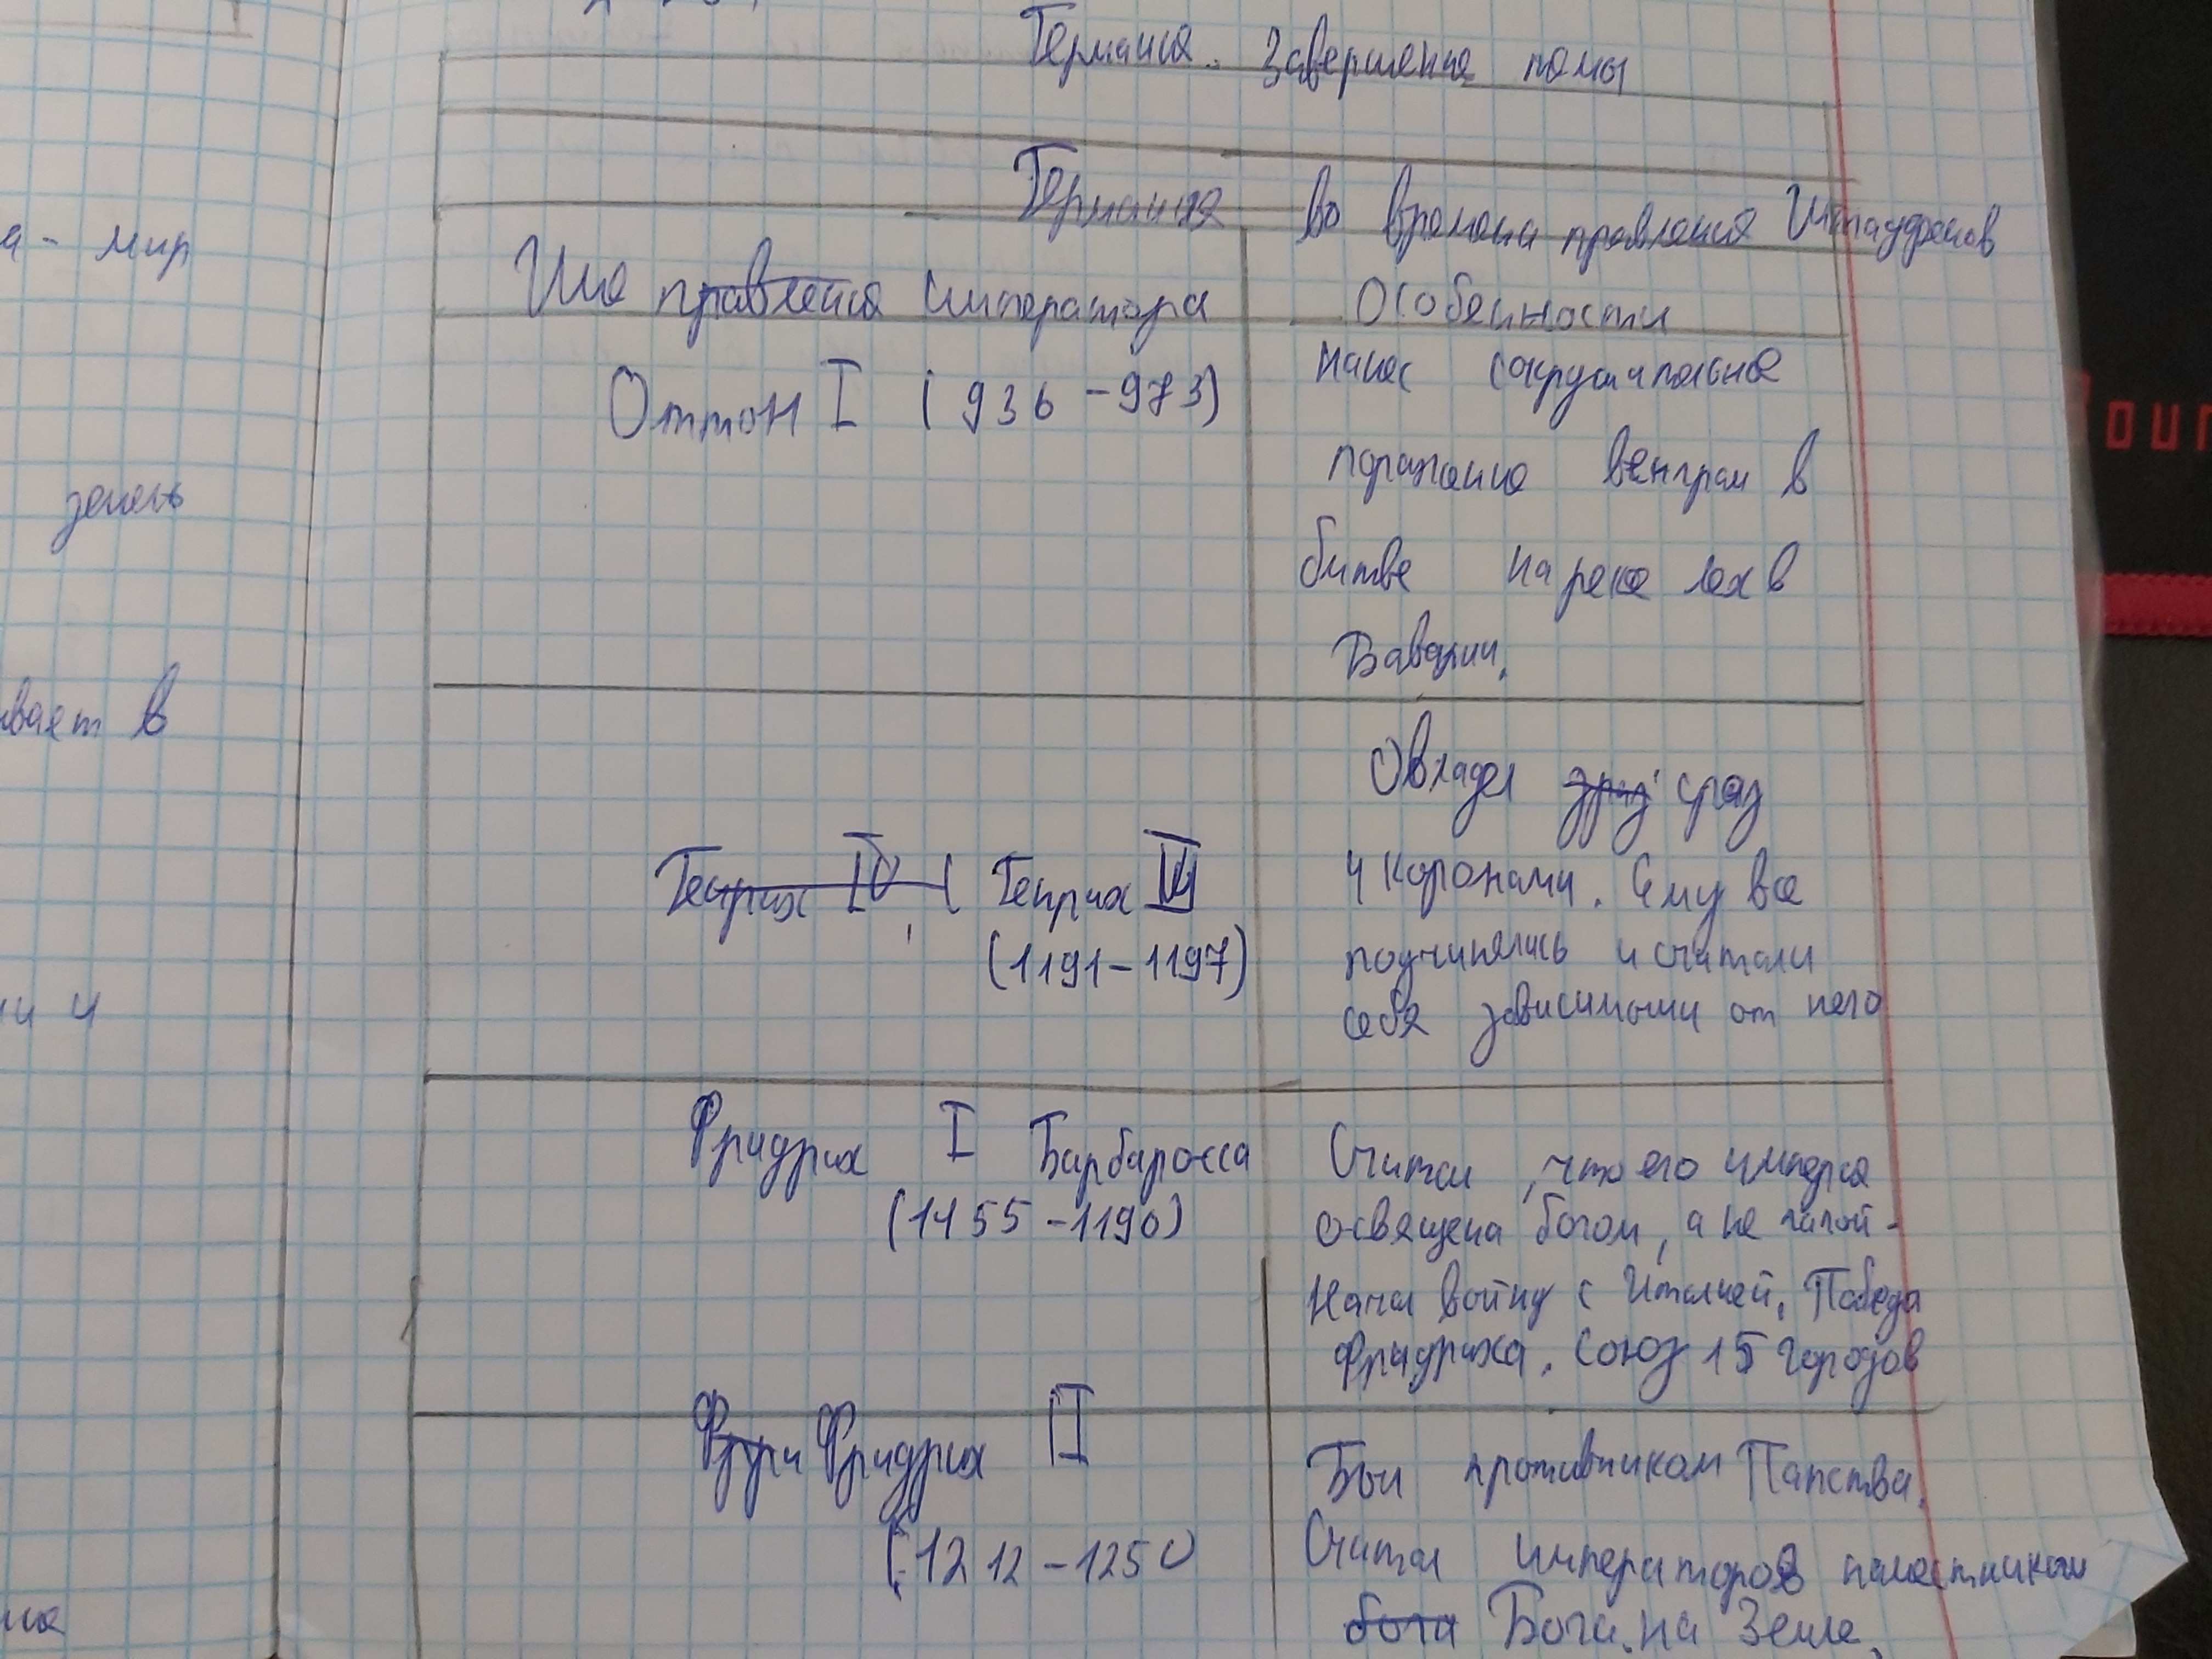 Германия. Завершение темы
Германия во времена правления Штауфенов
Имя правления императора Особенности
Оттон I (936-973) нанес сокрушительное
поражение венграм в
битве на реке Лех в
Баварии.
Овладел сраз
Генрих IV, ( Генрих VI 4 коронами. Ему все
(1191-1197) подчинялись и считали
себя зависимыми от него
Фридрих I Барбаросса Считал, что его империя
(1155-1190) освящена богом, а не папой.
Начал войну с Италией. Победа
Фридриха. Союз 15 городов
Фридрих II Был противником Папства.
(1212-1250 Считал императоров наместником
бога Бога на Земле.
а- мир
зелень
ивает в
ии и